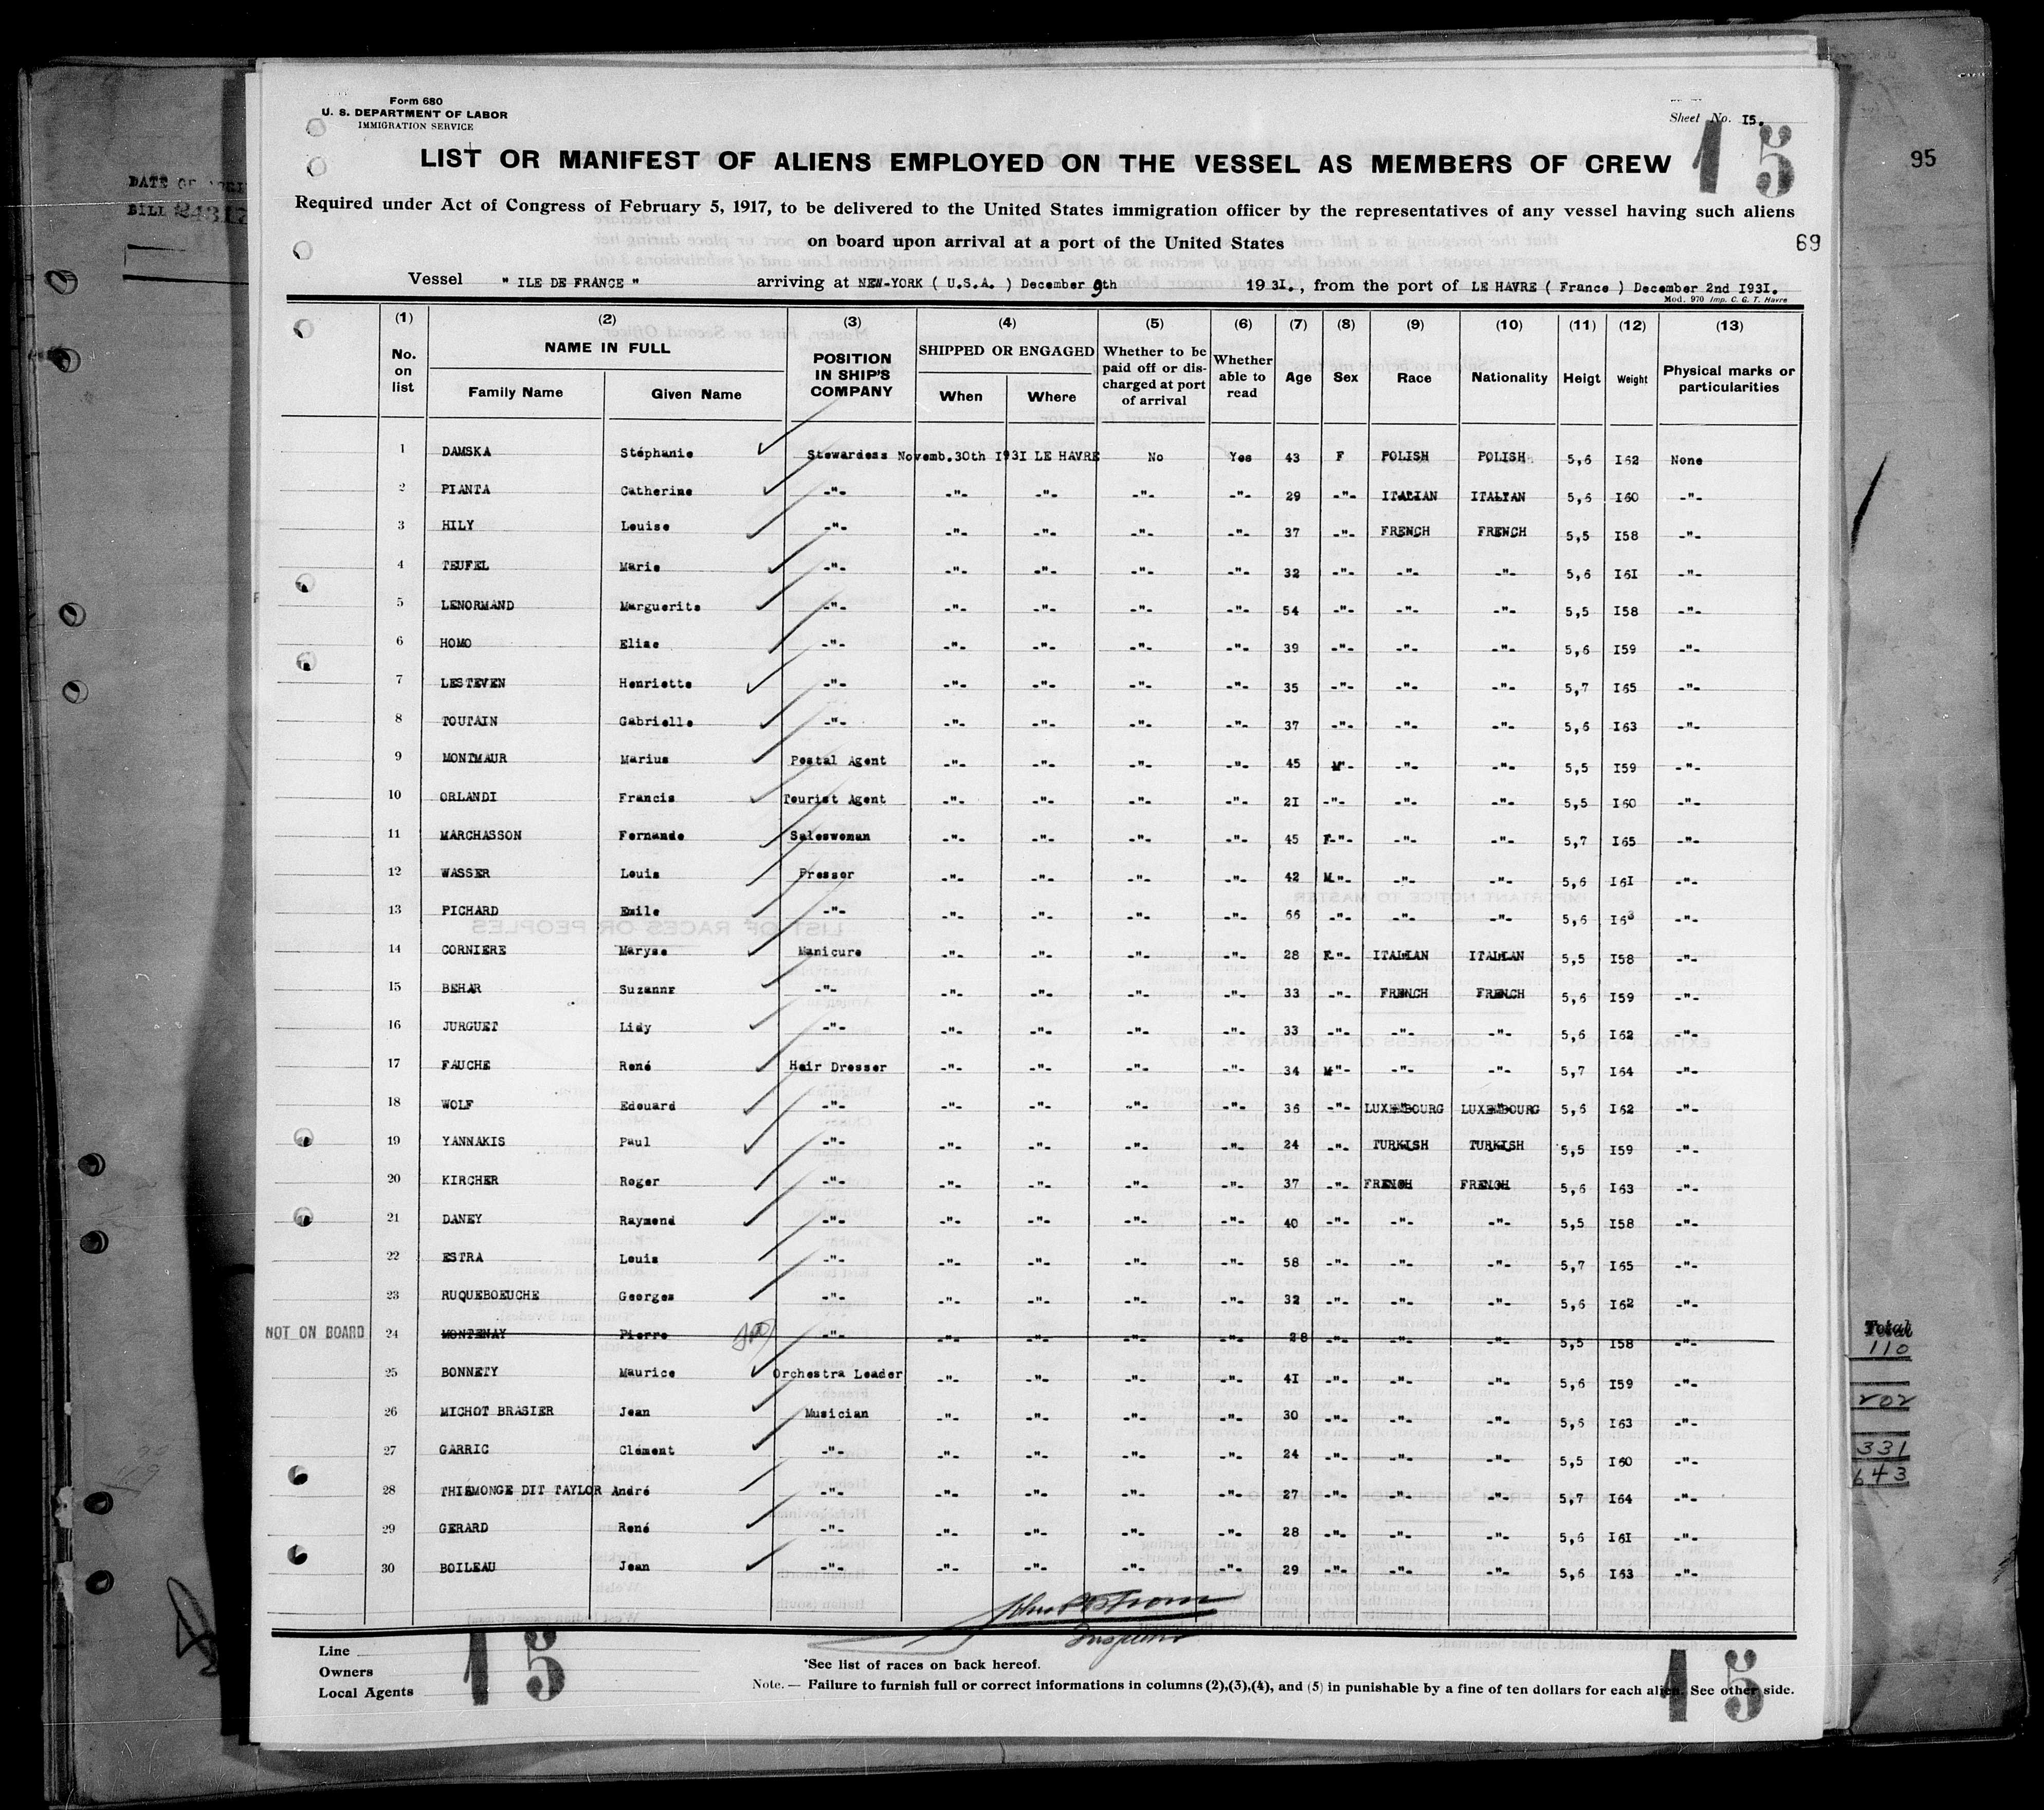 Form 680
U. S. DEPARTMENT OF LABOR
IMMIGRATION SERVICE
Sheet No. I5.
15
LIST OR MANIFEST OF ALIENS EMPLOYED ON THE VESSEL AS MEMBERS OF CREW
95
Required under Act of Congress of February 5, 1917, to be delivered to the United States immigration officer by the representatives of any vessel having such aliens
on board upon arrival at a port of the United States
69
Vessel " ILE DE FRANCE " arriving at NEW-YORK ( U.S.A. ) December 9th 1931., from the port of LE HAVRE ( France ) December 2nd I93I.
Mod. 970 Imp. C. G. T. Havre
(1) (2) (3) (4) (5) (6) (7) (8) (9) (10) (11) (12) (13)
No. on list NAME IN FULL Family Name Given Name POSITION IN SHIP'S COMPANY SHIPPED OR ENGAGED When Where Whether to be paid off or discharged at port of arrival Whether able to read Age Sex Race Nationality Heigt Weight Physical marks or particularities
1 DAMSKA Stéphanie Stewardess Novemb.30th I93I LE HAVRE No Yes 43 F POLISH POLISH 5,6 I62 None
2 PIANTA Catherine -"- -"- -"- -"- -"- 29 -"- ITALIAN ITALIAN 5,6 I60 -"-
3 HILY Louise -"- -"- -"- -"- -"- 37 -"- FRENCH FRENCH 5,5 I58 -"-
4 TEUFEL Marie -"- -"- -"- -"- -"- 32 -"- -"- -"- 5,6 I6I -"-
5 LENORMAND Marguerite -"- -"- -"- -"- -"- 54 -"- -"- -"- 5,5 I58 -"-
6 HOMO Elise -"- -"- -"- -"- -"- 39 -"- -"- -"- 5,6 I59 -"-
7 LESTEVEN Henriette -"- -"- -"- -"- -"- 35 -"- -"- -"- 5,7 I65 -"-
8 TOUTAIN Gabrielle -"- -"- -"- -"- -"- 37 -"- -"- -"- 5,6 I63 -"-
9 MONTMAUR Marius Postal Agent -"- -"- -"- -"- 45 M"- -"- -"- 5,5 I59 -"-
10 ORLANDI Francis Tourist Agent -"- -"- -"- -"- 2I -"- -"- -"- 5,5 I60 -"-
11 MARCHASSON Fernande Saleswoman -"- -"- -"- -"- 45 F-"- -"- -"- 5,7 I65 -"-
12 WASSER Louis Presser -"- -"- -"- -"- 42 M"- -"- -"- 5,6 I6I -"-
13 PICHARD Emile -"- -"- -"- -"- -"- 66 -"- -"- -"- 5,6 I63 -"-
14 CORNIERE Maryse Manicure -"- -"- -"- -"- 28 F"- ITALIAN ITALIAN 5,5 I58 -"-
15 BEHAR Suzannr -"- -"- -"- -"- -"- 33 -"- FRENCH FRENCH 5,6 I59 -"-
16 JURGUET Lidy -"- -"- -"- -"- -"- 33 -"- -"- -"- 5,6 I62 -"-
17 FAUCHE René Hair Dresser -"- -"- -"- -"- 34 M"- -"- -"- 5,7 I64 -"-
18 WOLF Edouard -"- -"- -"- -"- -"- 36 -"- LUXEMBOURG LUXEMBOURG 5,6 I62 -"-
19 YANNAKIS Paul -"- -"- -"- -"- -"- 24 -"- TURKISH TURKISH 5,5 I59 -"-
20 KIRCHER Roger -"- -"- -"- -"- -"- 37 -"- FRENCH FRENCH 5,6 I63 -"-
21 DANEY Raymond -"- -"- -"- -"- -"- 40 -"- -"- -"- 5,5 I58 -"-
22 ESTRA Louis -"- -"- -"- -"- -"- 58 -"- -"- -"- 5,7 I65 -"-
23 RUQUEBOEUCHE Georges -"- -"- -"- -"- -"- 32 -"- -"- -"- 5,6 I62 -"-
NOT ON BOARD 24 MONTENAY Pierre -"- -"- -"- -"- -"- 28 -"- -"- -"- 5,5 I58 -"-
25 BONNETY Maurice Orchestra Leader -"- -"- -"- -"- 4I -"- -"- -"- 5,6 I59 -"-
26 MICHOT BRASIER Jean Musician -"- -"- -"- -"- 30 -"- -"- -"- 5,6 I63 -"-
27 GARRIC Clément -"- -"- -"- -"- -"- 24 -"- -"- -"- 5,5 I60 -"-
28 THIÉMONGE DIT TAYLOR André -"- -"- -"- -"- -"- 27 -"- -"- -"- 5,7 I64 -"-
29 GERARD René -"- -"- -"- -"- -"- 28 -"- -"- -"- 5,6 I6I -"-
30 BOILEAU Jean -"- -"- -"- -"- -"- 29 -"- -"- -"- 5,6 I63 -"-
Inspector
Line
Owners
Local Agents
15
*See list of races on back hereof.
Note. — Failure to furnish full or correct informations in columns (2),(3),(4), and (5) in punishable by a fine of ten dollars for each alien. See other side.
15
DATE OF
BILL 24317
Total
110
202
331
643